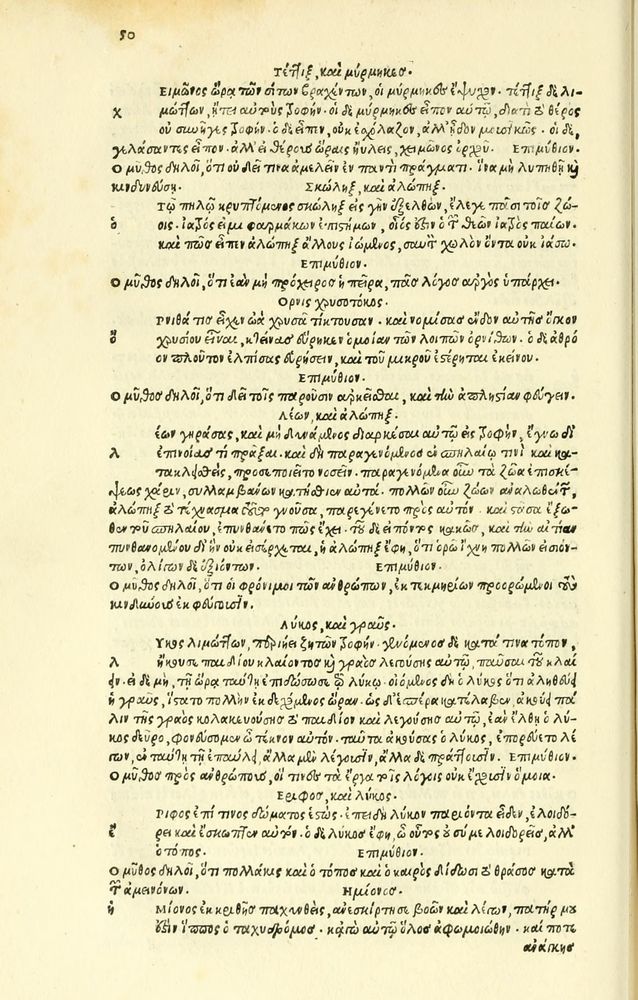 50
Τέτλιξ, καὶ μύρμηκες.
Ειμῶνος ὥρᾳ τῶν σίτων βραχέντων, οἱ μύρμηκες ἔψυχον. τέτλιξ δὲ λι-
χ μώτλων, ᾔτει αὐτοὺς τροφήν. οἱ δὲ μύρμηκες εἶπον αὐτῷ, διατί τὸ θέρος
οὐ συνῆγες τροφήν. ὁ δὲ εἶπεν, οὐκ ἐσχόλαζον, ἀλλ' ᾖδον μουσικῶς. οἱ δὲ,
γελάσαντες εἶπον. ἀλλ' εἰ θέρους ὥραις ηὔλεις, χειμῶνος ὀρχοῦ. Επιμύθιον.
Ο μῦθος δηλοῖ, ὅτι οὐ δεῖ τινα ἀμελεῖν ἐν παντὶ πράγματι. ἵνα μὴ λυπηθῇ καὶ
κινδυνεύσῃ. Σκώληξ, καὶ ἀλώπηξ.
Τῷ πηλῷ κρυπτόμενος σκώληξ εἰς γῆν ἐξελθὼν, ἔλεγε πᾶσι τοῖς ζώ-
ὁ οις. ἰατρός εἰμι φαρμάκων ἐπιστήμων, οἷός ἐστιν ὁ τῶν θεῶν ἰατρὸς παίων.
καὶ πῶς εἶπεν ἀλώπηξ ἄλλους ἰώμενος, σαυτὸν χωλὸν ὄντα οὐκ ἰάσω.
Επιμύθιον.
Ο μῦθος δηλοῖ, ὅτι ἐὰν μὴ πρόχειρος ἡ πεῖρα, πᾶς λόγος ἀργὸς ὑπάρχει.
Ορνις χρυσοτόκος.
Ρνιθά τις εἶχεν ὠὰ χρυσᾶ τίκτουσαν. καὶ νομίσας ἔνδον αὐτῆς ὄγκον
ὄ χρυσίου εἶναι, κτείνας εὕρηκεν ὁμοίαν τῶν λοιπῶν ὀρνίθων. ὁ δὲ ἀθρό
ον πλοῦτον ἐλπίσας εὑρήσειν, καὶ τοῦ μικροῦ ἐστέρηται ἐκείνου.
Επιμύθιον.
Ο μῦθος δηλοῖ, ὅτι δεῖ τοῖς παροῦσιν ἀρκεῖσθαι, καὶ τὴν ἀπληστίαν φεύγειν.
Λέων, καὶ ἀλώπηξ.
έων γηράσας, καὶ μὴ δυνάμενος διαρκέσαι αὑτῷ εἰς τροφὴν, ἔγνω δι'
λ ἐπινοίας τὶ πρᾶξαι. καὶ δὴ παραγενόμενος ἐν σπηλαίῳ τινὶ καὶ κα-
τακλιθεὶς, προσεποιεῖτο νοσεῖν. παραγενόμενα οὖν τὰ ζῶα ἐπισκέ-
ψεως χάριν, συλλαμβάνων κατήσθιεν αὐτά. πολλῶν οὖν ζώων ἀναλωθέντων,
ἀλώπηξ τὸ τέχνασμα αὐτοῦ γνοῦσα, παρεγένετο πρὸς αὐτὸν. καὶ στᾶσα ἔξω-
θεν τοῦ σπηλαίου, ἐπυνθάνετο πῶς ἔχει. τοῦ δὲ εἰπόντος κακῶς, καὶ τὴν αἰτίαν
πυνθανομένου δι' ἣν οὐκ εἰσέρχεται, ἡ ἀλώπηξ ἔφη, ὅτι ὁρῶ ἴχνη πολλῶν εἰσιόν-
των, ὀλίγων δὲ ἐξιόντων. Επιμύθιον.
Ο μῦθος δηλοῖ, ὅτι οἱ φρόνιμοι τῶν ἀνθρώπων, ἐκ τεκμηρίων προορώμενοι τοὺς
κινδύνους ἐκφεύγουσιν.
Λύκος, καὶ γραῦς.
Υκος λιμώτλων, περιῄει ζητῶν τροφήν. γενόμενος δὲ κατά τινα τόπον,
λ ἤκουσε παιδίου κλαίοντος καὶ γραὸς λεγούσης αὐτῷ, παῦσαι τοῦ κλαί
ειν. εἰ δὲ μὴ, τῇ ὥρᾳ ταύτῃ ἐπιδώσω σε τῷ λύκῳ. οἰόμενος δὲ ὁ λύκος ὅτι ἀληθεύει
ἡ γραῦς, ἵστατο πολλὴν ἐκδεχόμενος ὥραν. ὡς δ' ἑσπέρα κατέλαβεν, ἀκούει πά
λιν τῆς γραὸς κολακευούσης τὸ παιδίον καὶ λεγούσης αὐτῷ, ἐὰν ἔλθῃ ὁ λύ-
κος δεῦρο, φονεύσομεν ὦ τέκνον αὐτόν. ταῦτα ἀκούσας ὁ λύκος, ἐπορεύετο λέ
γων, ἐν ταύτῃ τῇ ἐπαύλει, ἄλλα μὲν λέγουσιν, ἄλλα δὲ πράττουσιν. Επιμύθιον.
Ο μῦθος πρὸς ἀνθρώπους, οἵ τινες τὰ ἔργα τοῖς λόγοις οὐκ ἔχουσιν ὅμοια.
Εριφος, καὶ λύκος.
Ριφος ἐπί τινος δώματος ἑστὼς, ἐπειδὴ λύκον παριόντα εἶδεν, ἐλοιδό-
ἔ ρει καὶ ἔσκωπτεν αὐτόν. ὁ δὲ λύκος ἔφη, ὦ οὗτος οὐ σύ με λοιδορεῖς, ἀλλ'
ὁ τόπος. Επιμύθιον.
Ο μῦθος δηλοῖ, ὅτι πολλάκις καὶ ὁ τόπος καὶ ὁ καιρὸς δίδωσι τὸ θράσος κατὰ
τῶν ἀμεινόνων. Ημίονος.
ἡ Μίονος ἐκ κριθῆς παχυνθεὶς, ἀνεσκίρτησε βοῶν καὶ λέγων, πατήρ μου
ἐστιν ἵππος ὁ ταχυδρόμος. κἀγὼ αὐτῷ ὅλος ἀφωμοιώθην. καί ποτε
ἀνάγκης